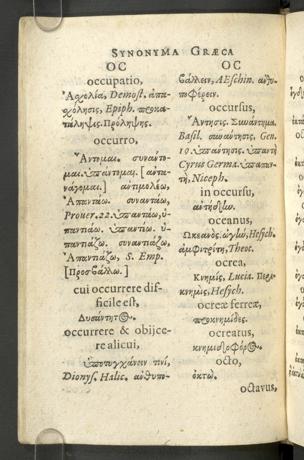 SYNONYMA GRÆCA
OC
occupatio,
Ἀσχολία, Demost. ἀπα-
σχόλησις, Epiph. προκα-
τάληψις. Πρόληψις.
occurro,
Ἄντομαι. συναντο-
μαι. ὑπαντομαι. [ἀντια-
νάγομαι.] ἀντιμολέω,
Ἀπαντάω. συναντάω,
Prouer. 22. ὑπαντάω, ὑ-
παντιάω. ὑπαντιω. ὑ-
παντιάζω. συναντιάζω,
Ἀπαντιάζω, S. Emp.
[Προσβάλλω.]
cui occurrere dif-
ficile est,
Δυσάντητος.
occurrere & obijce-
re alicui,
ὑποτυγχάνειν τινί,
Dionys. Halic. ἀνθυπο-
OC
βάλλειν, AEschin. ἀνθυ-
ποφέρειν.
occursus,
Ἄντησις. Συνάντημα.
Basil. συνάντησις, Gen.
10. ὑπαντησις. ὑπαντὴ
Cyrus Germa. ὑπαπαν-
τὴ, Niceph.
in occursu,
oceanus,
Ὠκεανὸς. ὠγὴν, Hesych.
ἀμφιτρίτη, Theoc.
ocrea,
Κνημίς, Lucia. Περι-
κνημὶς, Hesych.
ocreæ ferreæ,
προκνημίδες.
ocreatus,
κνημιδοφόρος.
octo,
ὀκτώ.
octavus,